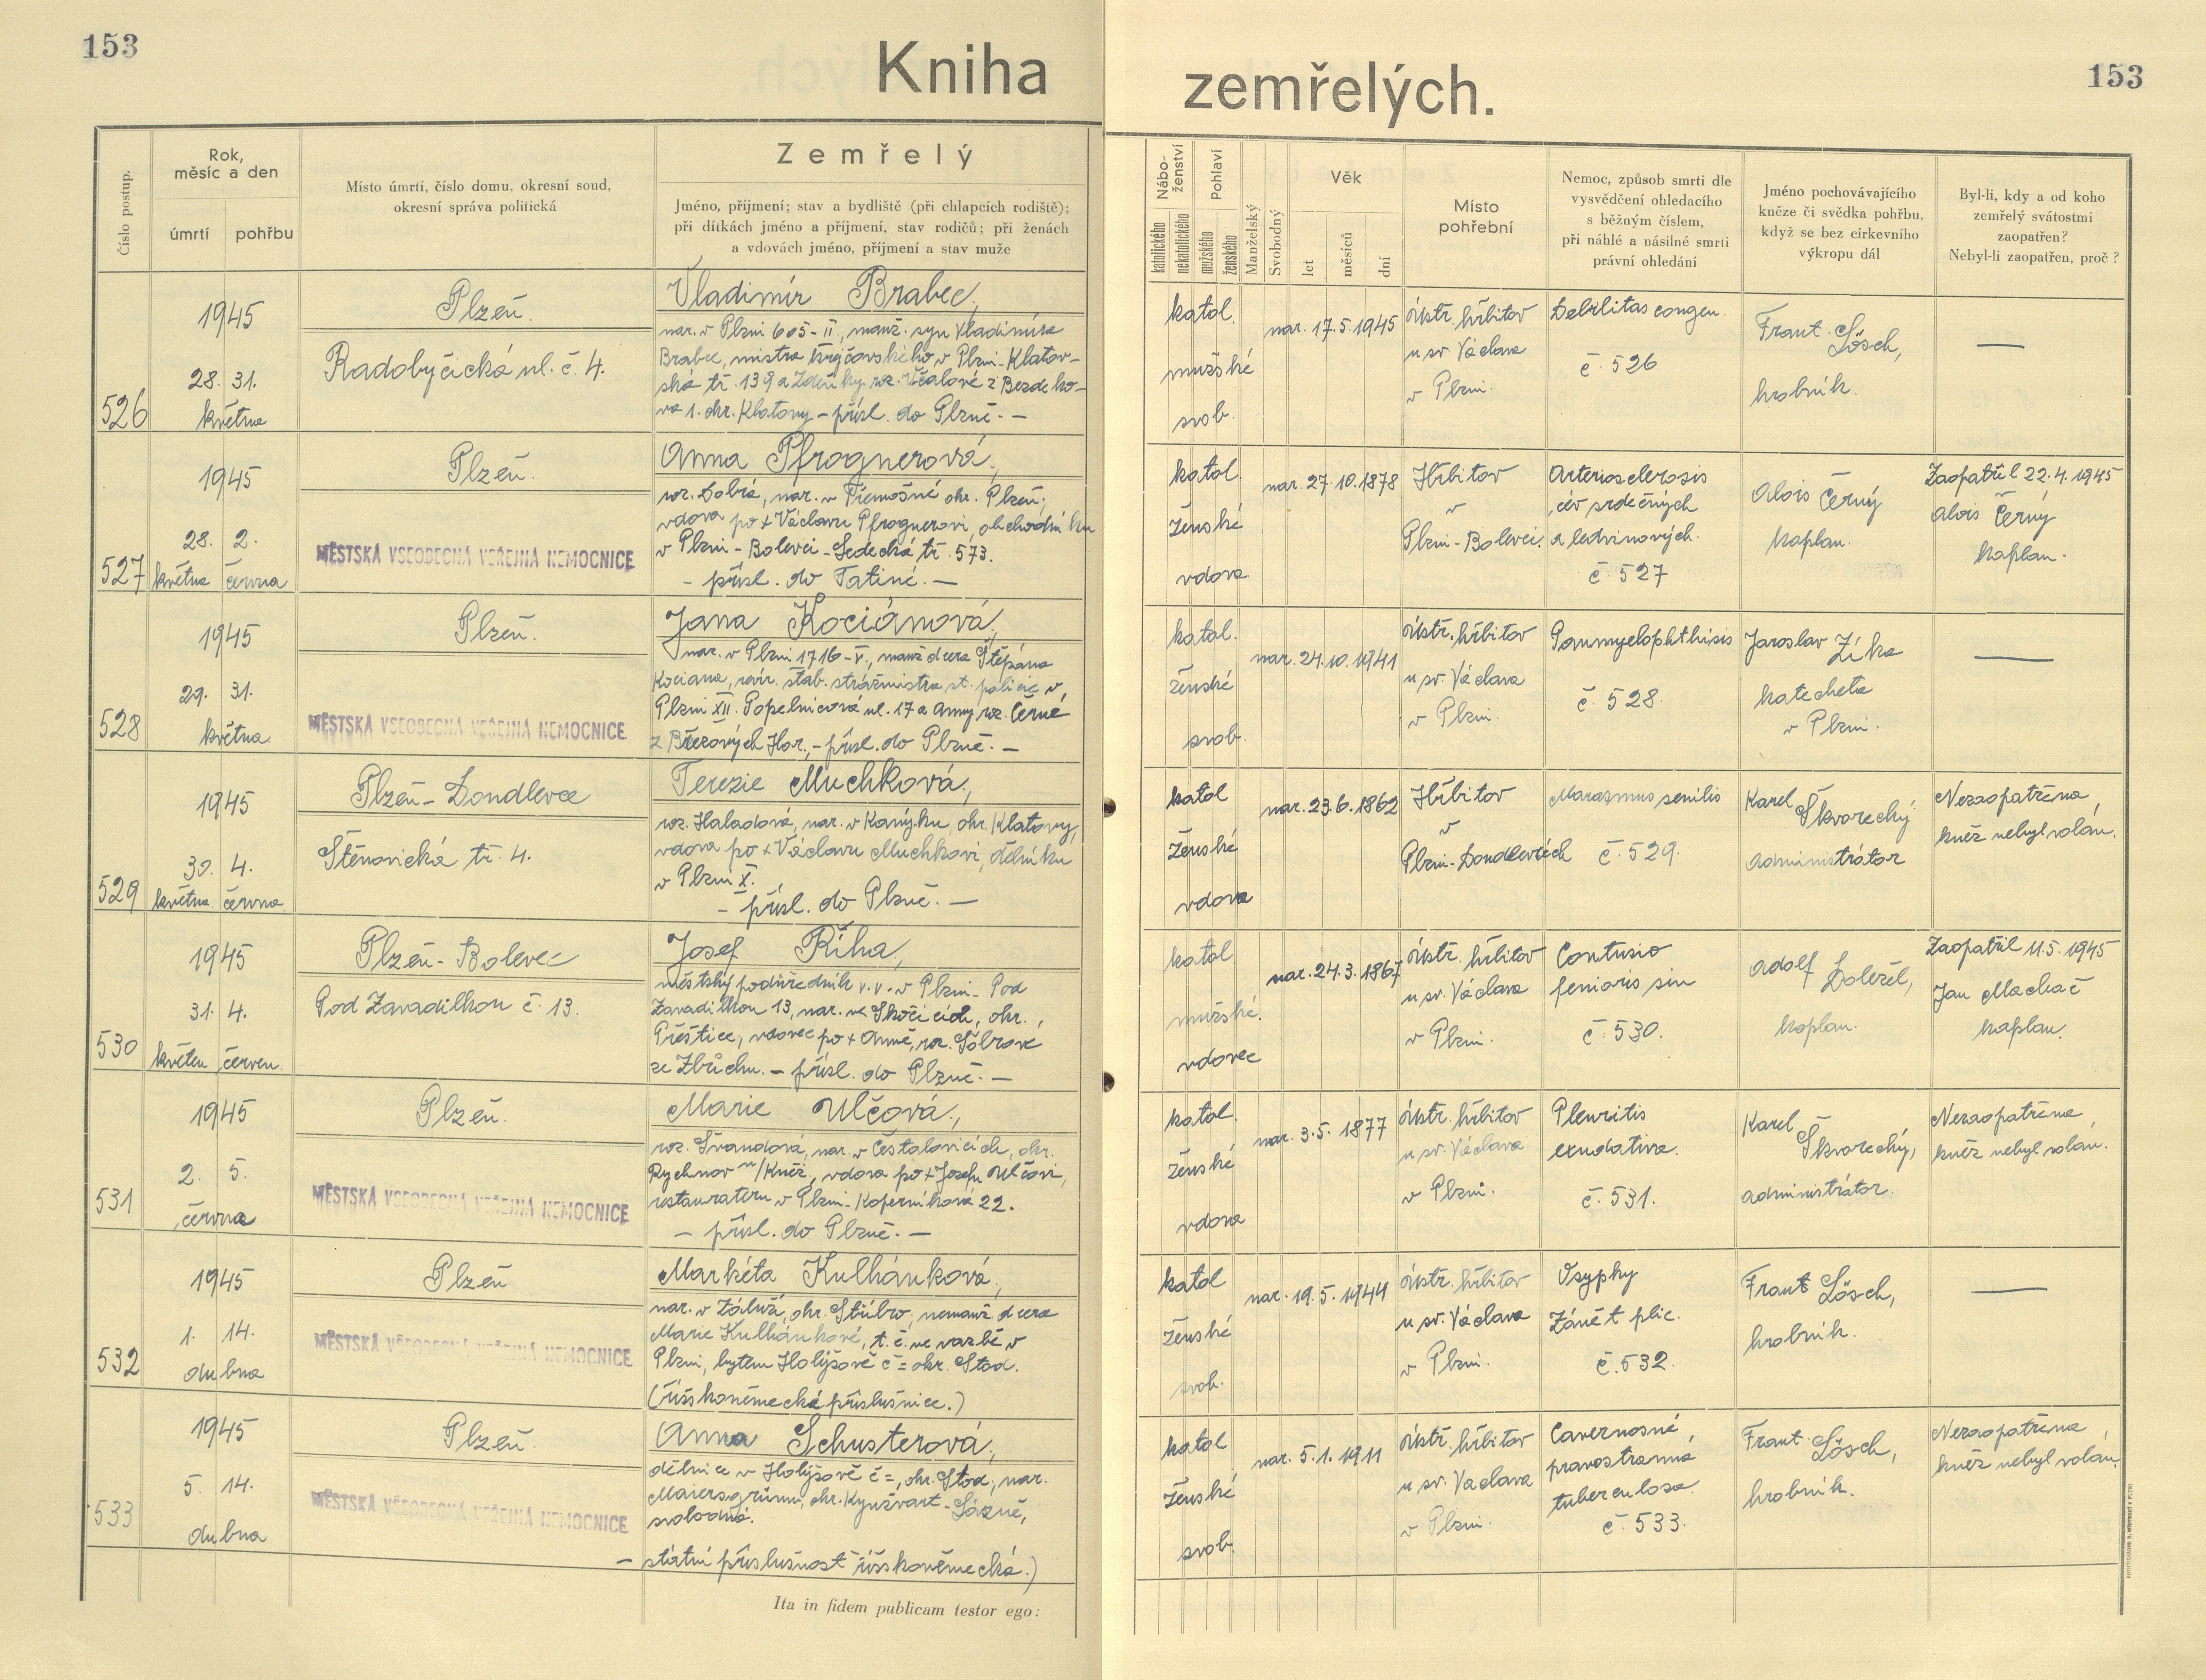 153
Kniha
zemřelých.
153
Číslo postup.
Rok,
měsíc a den
úmrtí
pohřbu
Místo úmrtí, číslo domu, okresní soud,
okresní správa politická
Zemřelý
Jméno, příjmení; stav a bydliště (při chlapcích rodiště);
při dítkách jméno a příjmení, stav rodičů; při ženách
a vdovách jméno, příjmení a stav muže
Nábo-
ženství
katolického
nekatolického
Pohlaví
mužského
ženského
Manželský
Svobodný
Věk
let
měsíců
dní
Místo
pohřební
Nemoc, způsob smrti dle
vysvědčení ohledacího
s běžným číslem,
při náhlé a násilné smrti
právní ohledání
Jméno pochovávajícího
kněze či svědka pohřbu,
když se bez církevního
výkropu dál
Byl-li, kdy a od koho
zemřelý svátostmi
zaopatřen?
Nebyl-li zaopatřen, proč?
526
1945
28. 31.
května
Plzeň.
Radobyčická ul. č. 4.
Vladimír Brabec,
nar. v Plzni 605-II., manž. syn Vladimíra
Brabec, mistra krejčovského v Plzni-Klatov-
ská tř. 139 a Zdeňky roz. Včalové z Bezděko-
va 1. okr. Klatovy – přísl. do Plzně. –
katol.
mužské
svob.
nar. 17.5.1945
ústř. hřbitov
u sv. Václava
v Plzni.
Debilitas congen.
č. 526
Frant. Lösch,
hrobník.
—
527
1945
28. 2.
května června
Plzeň.
MĚSTSKÁ VŠEOBECNÁ VEŘEJNÁ NEMOCNICE
Anna Pfrognerová,
roz. Dobrá, nar. v Třemošné okr. Plzeň;
vdova po + Václavu Pfrognerovi, obchodníku
v Plzni-Bolevci-Ledecká tř. 573.
– přísl. do Tatiné. –
katol.
ženské
vdova
nar. 27.10.1878
Hřbitov
v
Plzni-Bolevci.
Arteriosclerosis
cév srdečných
a ledvinových.
č. 527
Alois Černý
kaplan.
Zaopatřil 22.4.1945
Alois Černý
kaplan.
528
1945
29. 31.
května
Plzeň.
MĚSTSKÁ VŠEOBECNÁ VEŘEJNÁ NEMOCNICE
Jana Kociánová,
nar. v Plzni 1716-V., manž dcera Štěpána
Kociana, revír. štáb. strážmistra st. policie v
Plzni XII. Popelnicová ul. 17 a Anny roz. Černé
z Březových Hor, – přísl. do Plzně. –
katol.
ženské
svob.
nar. 24.10.1941
ústř. hřbitov
u sv. Václava
v Plzni.
Panmyelophthisis
č. 528.
Jaroslav Zíka
katecheta
v Plzni.
—
529
1945
30. 4.
května června
Plzeň-Doudlevce
Štěnovická tř. 4.
Terezie Muchková,
roz. Haladová, nar. v Kanýku, okr. Klatovy,
vdova po + Václavu Muchkovi, dělníku
v Plzni X.
– přísl. do Plzně. –
katol
ženské
vdova
nar. 23.6.1862
Hřbitov
v
Plzni-Doudlevcích
Marasmus senilis
č. 529.
Karel Škvorechý
administrátor
Nezaopatřena,
kněz nebyl volán.
530
1945
31. 4.
květen červen.
Plzeň-Bolevec
Pod Zavadilkou č. 13.
Josef Říha,
městský podúředník v.v. v Plzni-Pod
Zavadilkou 13, nar. ve Skočicích, okr.
Přeštice, vdovec po + Anně, roz. Šôbrové
ze Zbůchu. – přísl. do Plzně. –
katol.
mužské.
vdovec
nar. 24.3.1867
ústř. hřbitov
u sv. Václava
v Plzni.
Contusio
femoris sin
č. 530.
Adolf Doležel,
kaplan.
Zaopatřil 11.5.1945
Jan Machač
kaplan.
531
1945
2. 5.
června
Plzeň.
MĚSTSKÁ VŠEOBECNÁ VEŘEJNÁ NEMOCNICE
Marie Ulčová,
roz. Švandová, nar. v Častolovicích, okr.
Rychnov n/Kněž., vdova po + Josefu Ulčovi,
restauratéru v Plzni-Koperníková 22.
– přísl. do Plzně. –
katol.
ženské
vdova
nar. 3.5.1877
ústř. hřbitov
u sv. Václava
v Plzni.
Pleuritis
exudativa.
č. 531.
Karel Škvorechý,
administrátor.
Nezaopatřena,
kněz nebyl volán.
532
1945
1. 14.
dubna
Plzeň
MĚSTSKÁ VŠEOBECNÁ VEŘEJNÁ NEMOCNICE
Markéta Kulhánková,
nar. v Záluží, okr. Stříbro, nemanž dcera
Marie Kulhánkové, t. č. ve vazbě v
Plzni, bytem Holýšově č = okr. Stod.
(říšskoněmecká příslušnice.)
katol
ženské
svob.
nar. 19.5.1944
ústř. hřbitov
u sv. Václava
v Plzni.
Osypky
Zánět plic.
č. 532.
Frant Lösch,
hrobník.
—
533
1945
5. 14.
dubna
Plzeň.
MĚSTSKÁ VŠEOBECNÁ VEŘEJNÁ NEMOCNICE
Anna Schusterová,
dělnice v Holýšově č =, okr. Stod, nar.
Maiersgrünu, okr. Kynžvart-Lázně,
svobodná.
– státní příslušnost říšskoněmecká.)
katol
ženské
svob.
nar. 5.1.1911
ústř. hřbitov
u sv. Václava
v Plzni.
Cavernosně
pravostranná
tuberculosa.
č. 533.
Frant. Lösch,
hrobník.
Nezaopatřena,
kněz nebyl volán.
Ita in fidem publicam testor ego: